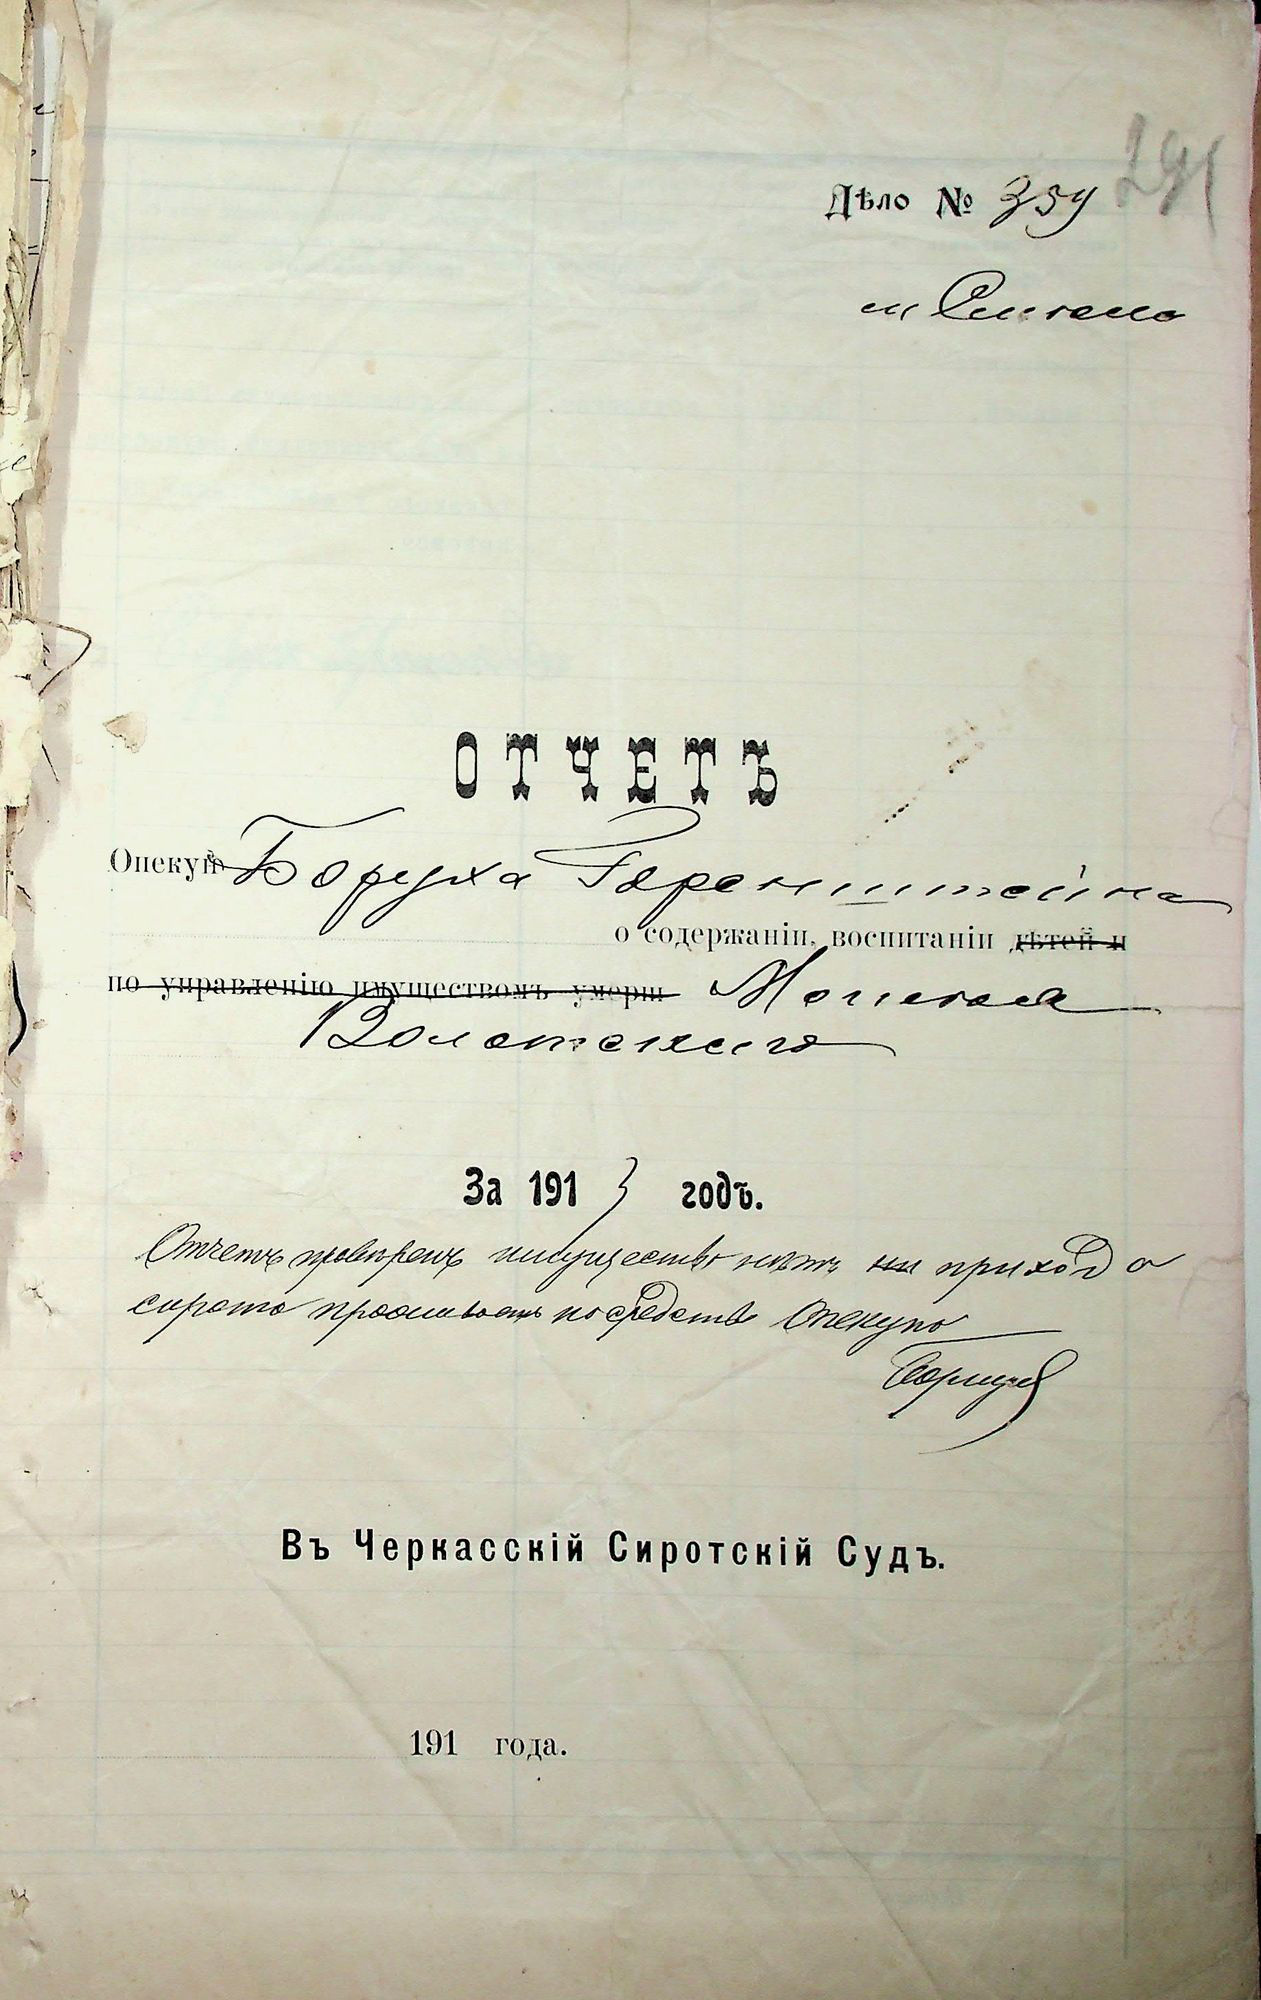 291
Дѣло № 354
м Смѣла
ОТЧЕТЪ
Опекуна Боруха Горенштейна
о содержаніи, воспитаніи дѣтей и
по управленію имуществомъ умерш Мошка
Золотского
За 1913 годъ.
Отчетъ провѣренъ имущество нѣтъ ни прихода
сирота проживаетъ на средства Опекуна
Въ Черкасскій Сиротскій Судъ.
191 года.